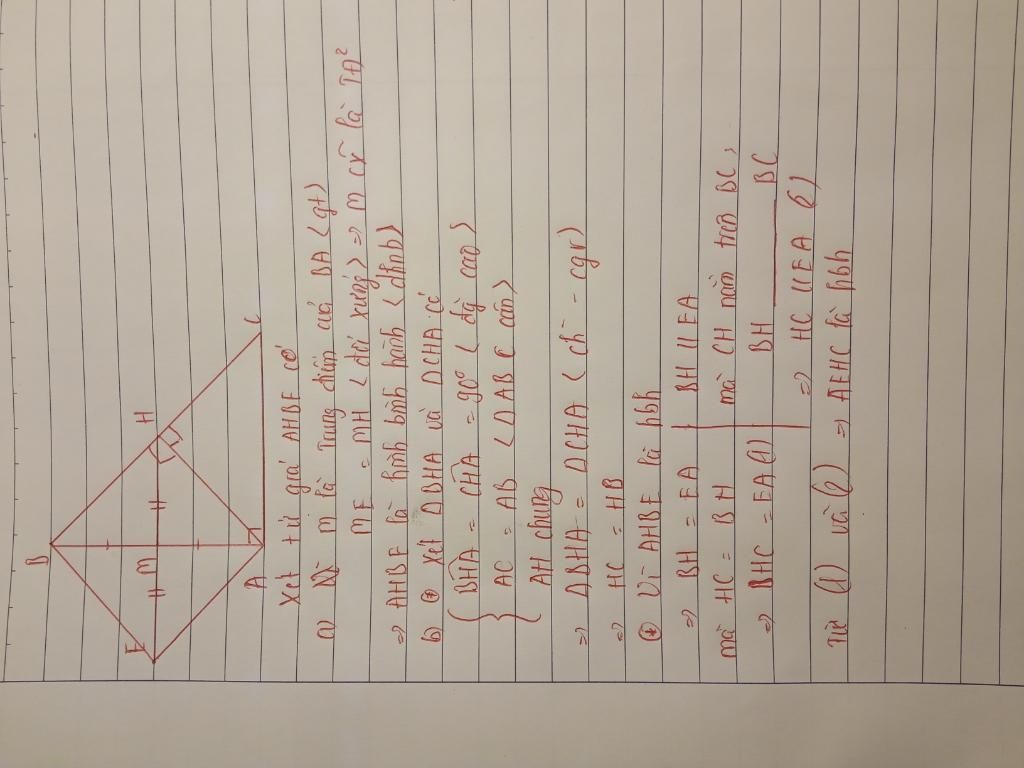 B
H
C
E
M
A
Xét tứ giác AHBE có
a) M là trung điểm của BA (gt)
ME = MH < đối xứng > => M cx là TĐ²
=> AHBE là hình bình hành < dhnb >
b) * Xét ΔBHA và ΔCHA có
BHA = CHA = 90° ( đg cao >
AC = AB < ΔABC cân >
AH chung
=> ΔBHA = ΔCHA ( ch - cgv )
=> HC = HB
* Vì AHBE là hbh
=> BH = EA BH // EA
mà HC = BH mà CH nằm trên BC,
=> HC = EA (1) BH BC
=> HC // EA (2)
Từ (1) và (2) => AEHC là hbh